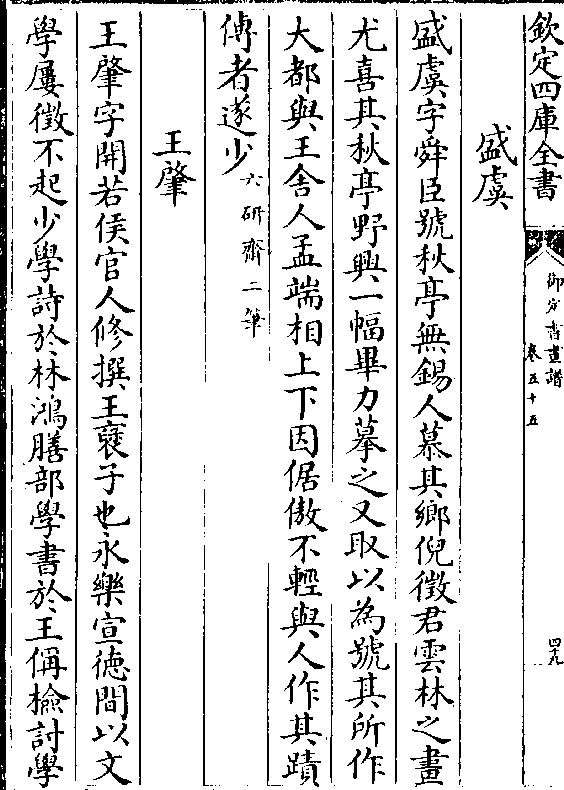 欽定四庫全書
御定書畫譜
卷五十五
四九
盛虞
盛虞字舜臣號秋亭無錫人慕其鄉倪徵君雲林之畫
尤喜其秋亭野興一幅畢力摹之又取以為號其所作
大都與王舍人孟端相上下因倨傲不輕與人作其蹟
傳者遂少六研齋二筆
王肇
王肇字開若侯官人修撰王褒子也永樂宣德間以文
學屢徵不起少學詩於林鴻膳部學書於王偁檢討學